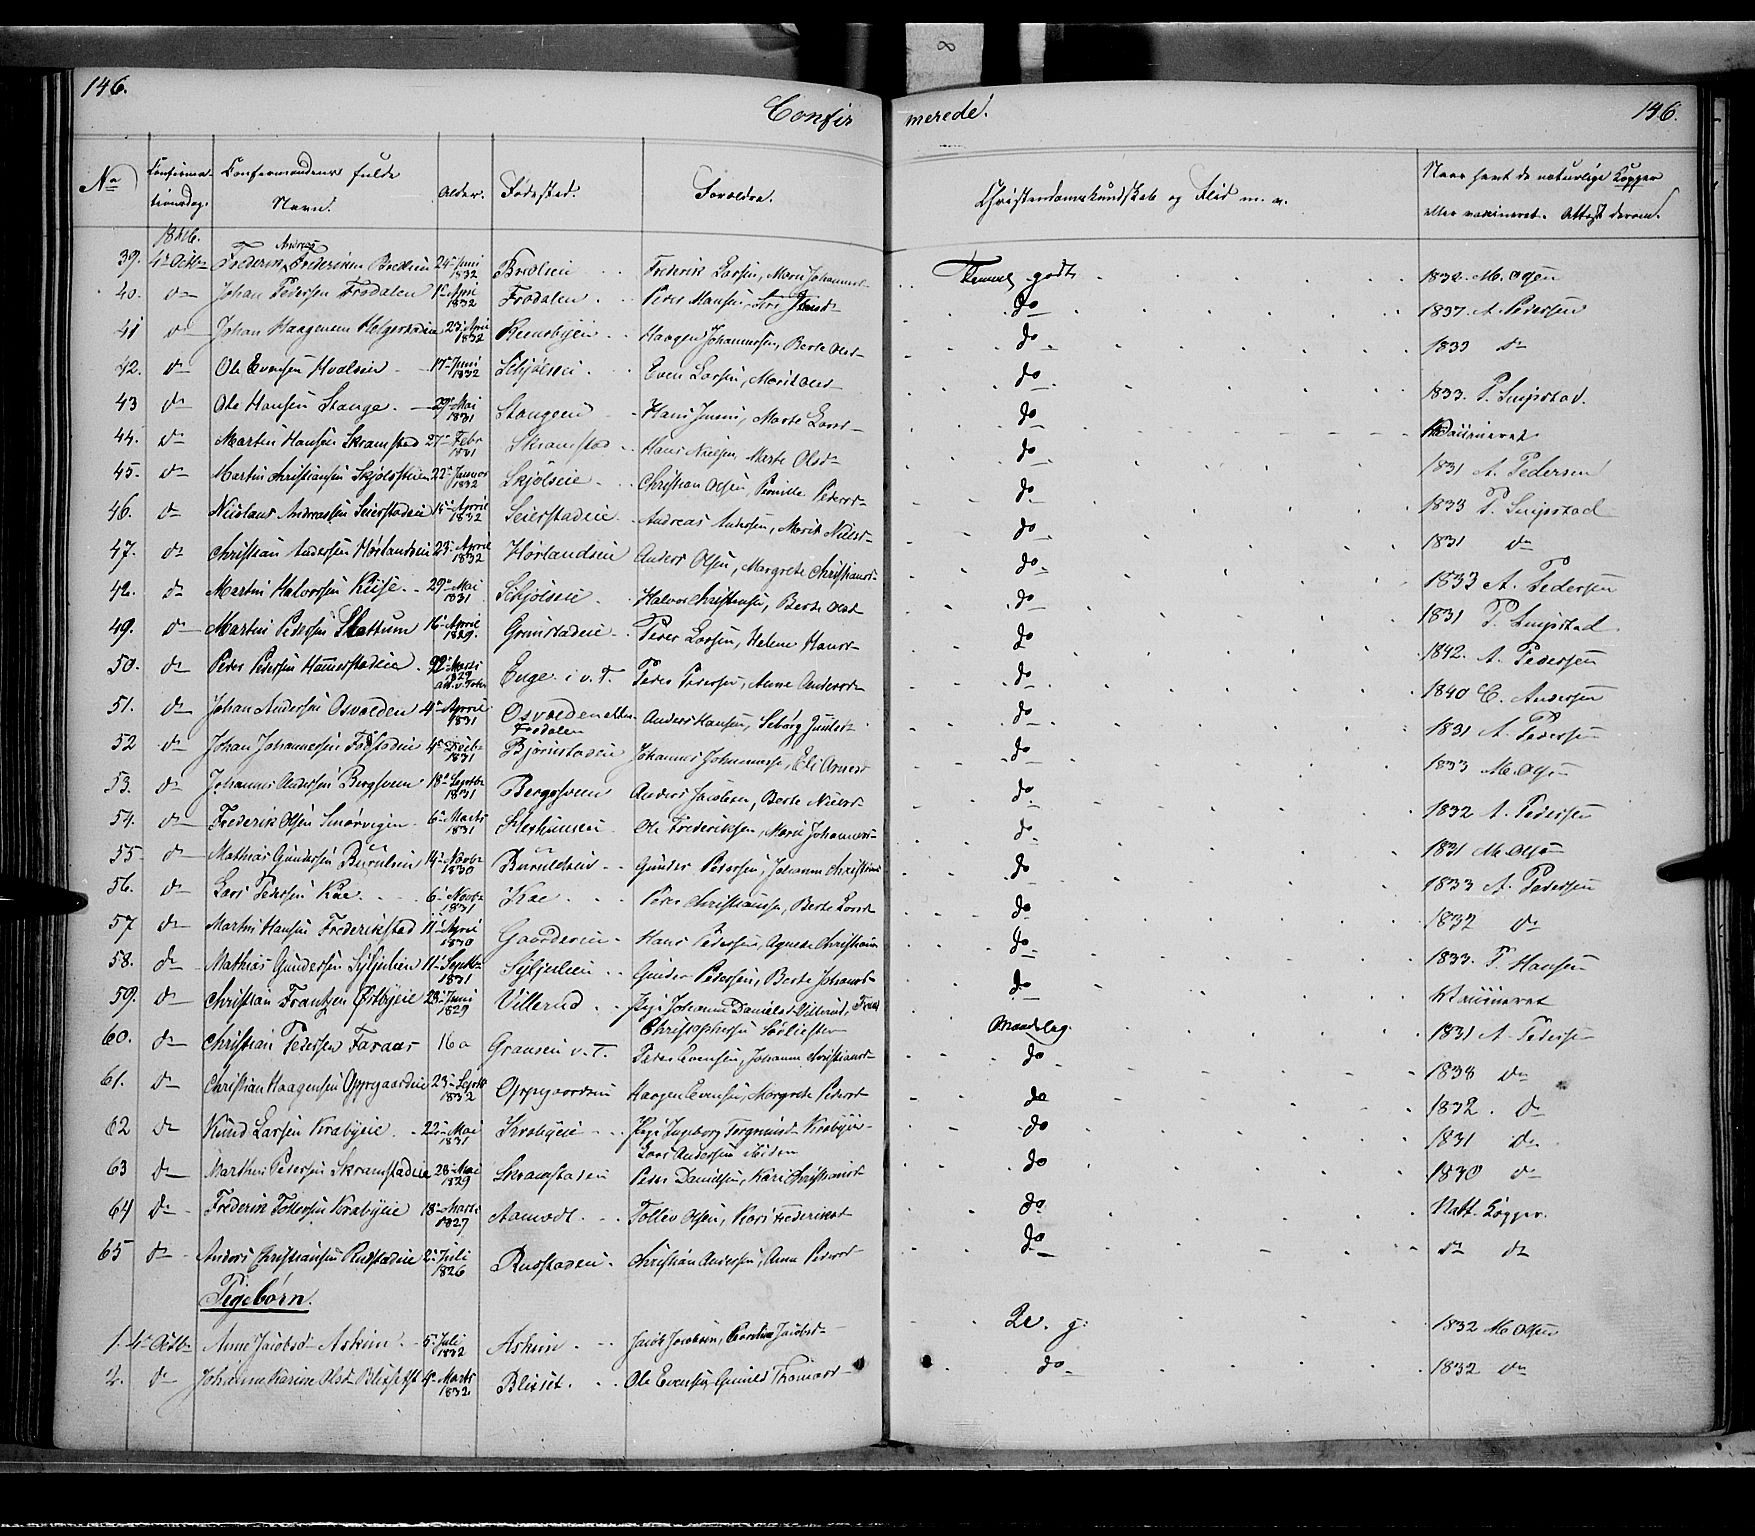 146.
Confir merede.
146.
No Confirmationsdag. Confirmandens fulde Navn. Alder. Fødested. Forældre. Christendomskundskab og Flid m. v. Naar havt de naturlige Kopper eller vaxineret. Attest derom.
1846.
39. 4de Octb Frederik Andreas Frederiksen Bredlien 24de Juni 1832 Bredlien Frederik Larsen, Mari Johannesd Temmel. godt 1832. M. Olsen
40. do Johan Pedersen Frodalen 1ste April 1832 Frodalen Peder Hansen, do 1837. A. Pedersen
41 do Johan Haagensen 23de April 1832 Haagen Johannessen, Berte Olsd do 1833 do
42. do Ole Evensen Hvalseie 17de Juni 1832 Skjølseie Even Larsen, Marit Olsd do 1833. P. Smidstad.
43 do Ole Hansen Stange 29de Mai 1831 Stangeeie Hans Jensen, Marte Larsd do Vaccineret
44. do Martin Hansen Skramstad 27de Febr 1831 Skramstad Hans Nielsen, Marte Olsd do 1831 A. Pedersen
45. do Martin Christiansen Skjølseien 22de Januar 1832 Skjølseie Christian Olsen, Pernille Pedersd do 1833 P. Smidstad
46. do Nicolaus Andreassen Seierstadeie 15de April 1832 Seierstadeie Andreas Andersen, Marit Nielsd do 1831 do
47. do Christian Andersen Hørlandseie 23de April 1832 Hørlandseie Anders Olsen, Margrete Christiansd do 1833 A. Pedersen
48. do Martin Halvorsen Kiise 29de Mai 1831 Skjølseie Halvor Christiansen, Berte Olsd do 1831 P. Smidstad
49. do Martin Pedersen Skattum 16de April 1829. Grimstadeie Peder Larsen, Helene Hansd do 1842. A. Pedersen
50. do Peder Pedersen Hammerstadeie 22de Marts 1829 Enge i v. T. Peder Pedersen, Anne Andersd do 1840 C. Andersen
51. do Johan Andersen Osvolden 4de April 1831 Osvolden Frodalen Anders Hansen, do 1831 A. Pedersen
52 do Johan Johannessen 4de 1831 Bjørnstadeie Johannes Johannessen, Eli Arnesd do 1833 M. Olsen
53. do Johannes Andersen Bergsveen 18de Septbr 1831 Bergsveen Anders Jacobsen, Berte Nielsd do 1832 A. Pedersen
54. do Frederik Olsen Smørvigen 6te Marts 1831 Ole Frederiksen, Mari Johannesd do 1831 M. Olsen
55. do Mathias Gundersen Burulien 14de Novbr 1830 Gunder Pedersen, Johanne Christiansd do 1833 A. Pedersen
56. do Lars Pedersen Kae 6te Novbr 1831 Kae Peder Christiansen, Berte Larsd do 1832 do
57 do Martin Hansen Frederikstad 11te April 1830 Gaardereie Hans Pedersen, Agnete Christiansd do 1833. P. Hansen
58. do Mathias Gundersen Syljulien 11te Septbr 1831 Syljulien Gunder Pedersen, Berte Johansd do Vaccineret
59. do Christian Frantzen Østbyeie 28de Juni 1829 Villerud Pige Johanne Danielsd Villerud, Frants Christophersen Maadelig. 1831 A. Pedersen
60. do Christian Pedersen Faraas 16 a Granseie v. T. Peder Evensen, Johanne Christiansd do 1838 do
61. do Christian Haagensen Oppegaardeie 23de Septb 1832 Oppegaardeie Haagen Evensen, Margrete Pedersd do 1832. do
62 do Knud Larsen Krabyeie 22de Mai 1831 Krabyeie Pige Ingeborg Krabyeie Lars Andersen do 1831 do
63 do Martin Pedersen Skramstadeie 28de Mai 1829 Skramstadeie Peder Danielsen, Kari Christiansd do 1830 do
64 do Frederik Tollevsen Krabyeie 18de Marts 1827 Aamodt Tollev Olsen, Kari Frederiksd do Natt. Kopper.
65 do Anders Christiansen Rudstadeie 2den Juli 1826 Rudstadeie Christian Andersen, Anne Pedersd do do do
Pigebørn.
1. 4de Octb Anne Jacobsd Askim 5te Juli 1832 Askim Jacob Jacobsen, Jacobsd M. g. 1832 M. Olsen
2. do Johanne Karine Olsd 4de Marts 1832 Ole Evensen, Gunild Thomasd do 1832 do